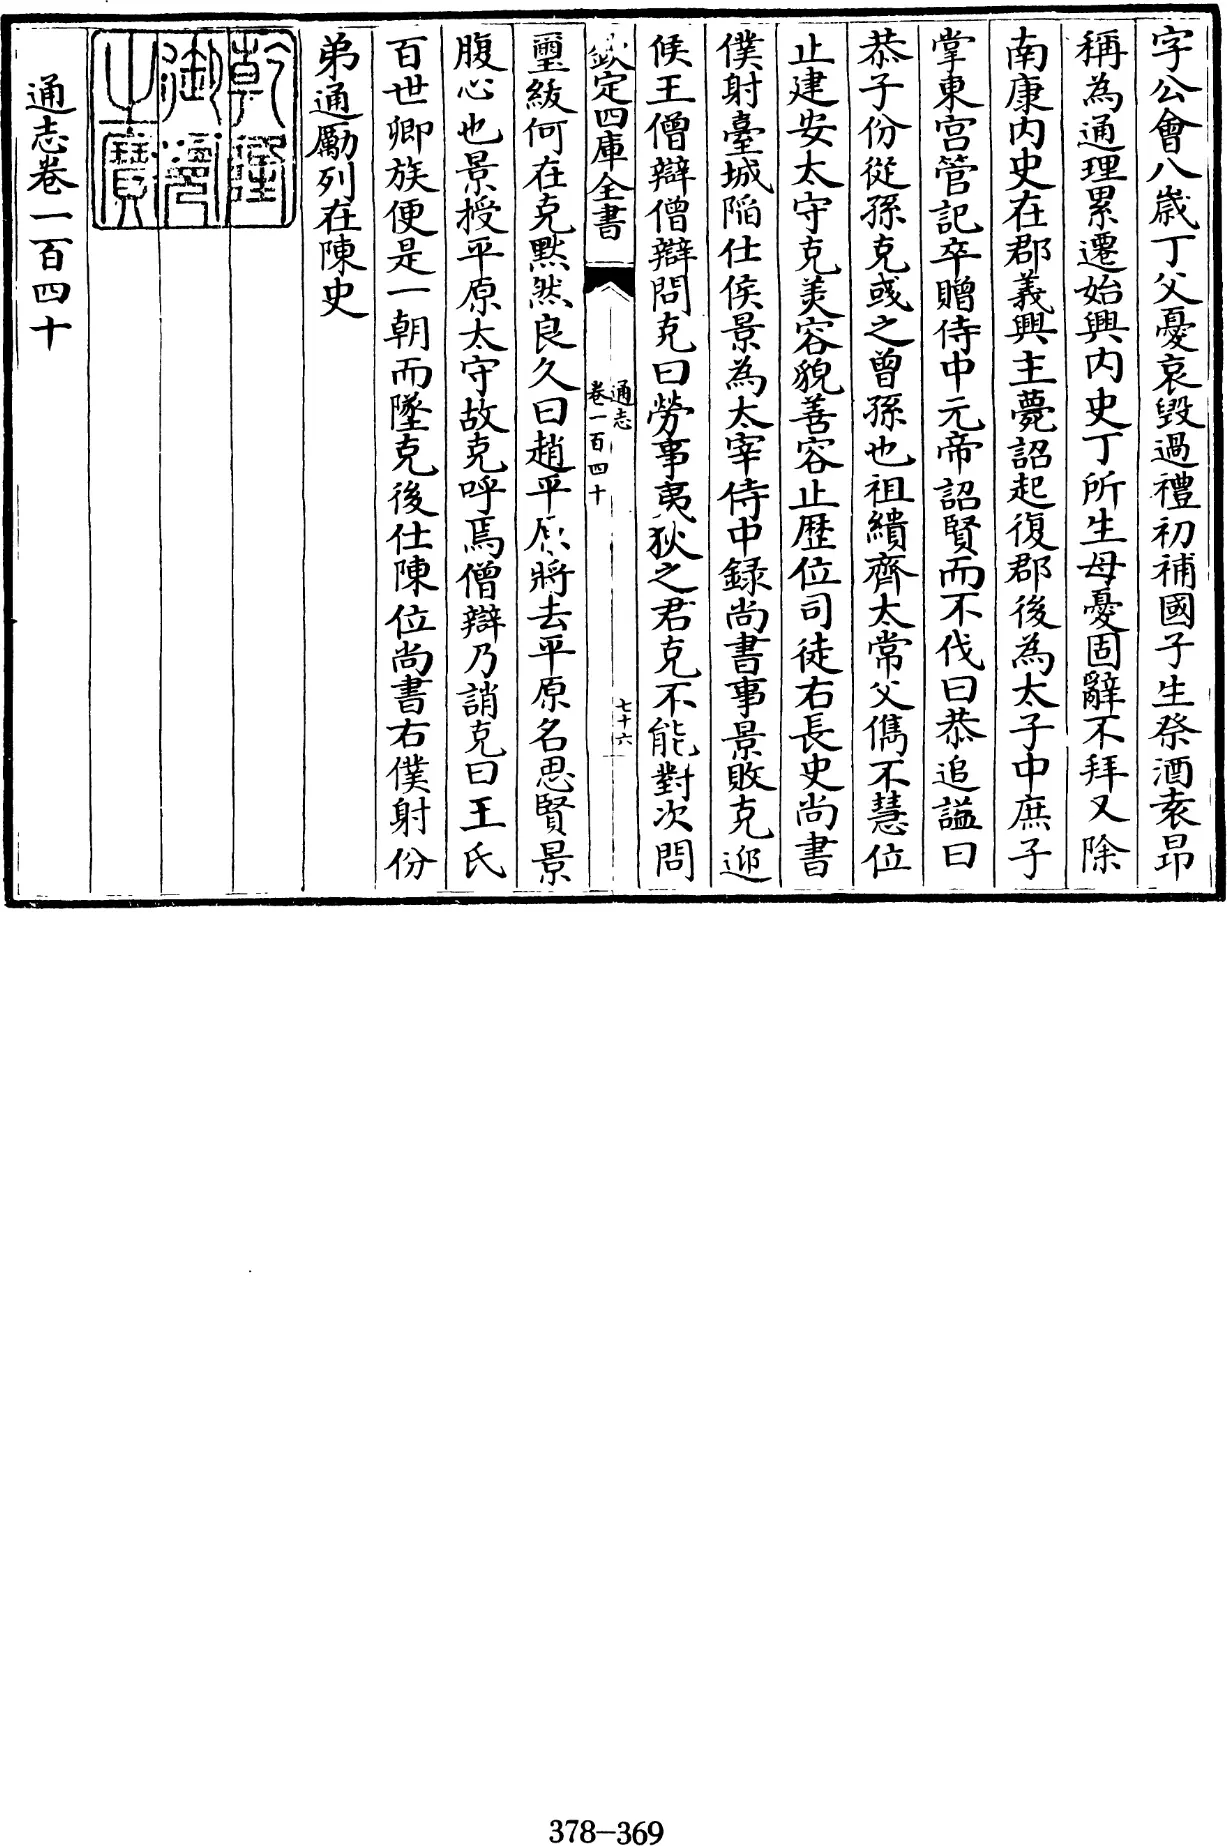 字公會八歲丁父憂哀毀過禮初補國子生祭酒袁昂
稱為通理累遷始興內史丁所生母憂固辭不拜又除
南康內史在郡義興主薨詔起復郡後為太子中庶子
掌東宮管記卒贈侍中元帝詔賢而不伐曰恭追謚曰
恭子份從孫克彧之曾孫也祖繢齊太常父儁不慧位
止建安太守克美容貌善容止歷位司徒右長史尚書
僕射臺城陷仕侯景為太宰侍中錄尚書事景敗克迎
候王僧辯僧辯問克曰勞事夷狄之君克不能對次問
欽定四庫全書
通志
卷一百四十
七十六
璽紱何在克默然良久曰趙平原將去平原名思賢景
腹心也景授平原太守故克呼焉僧辯乃誚克曰王氏
百世卿族便是一朝而墜克後仕陳位尚書右僕射份
弟通勵列在陳史
乾隆
御覽
之寶
通志卷一百四十
378-369